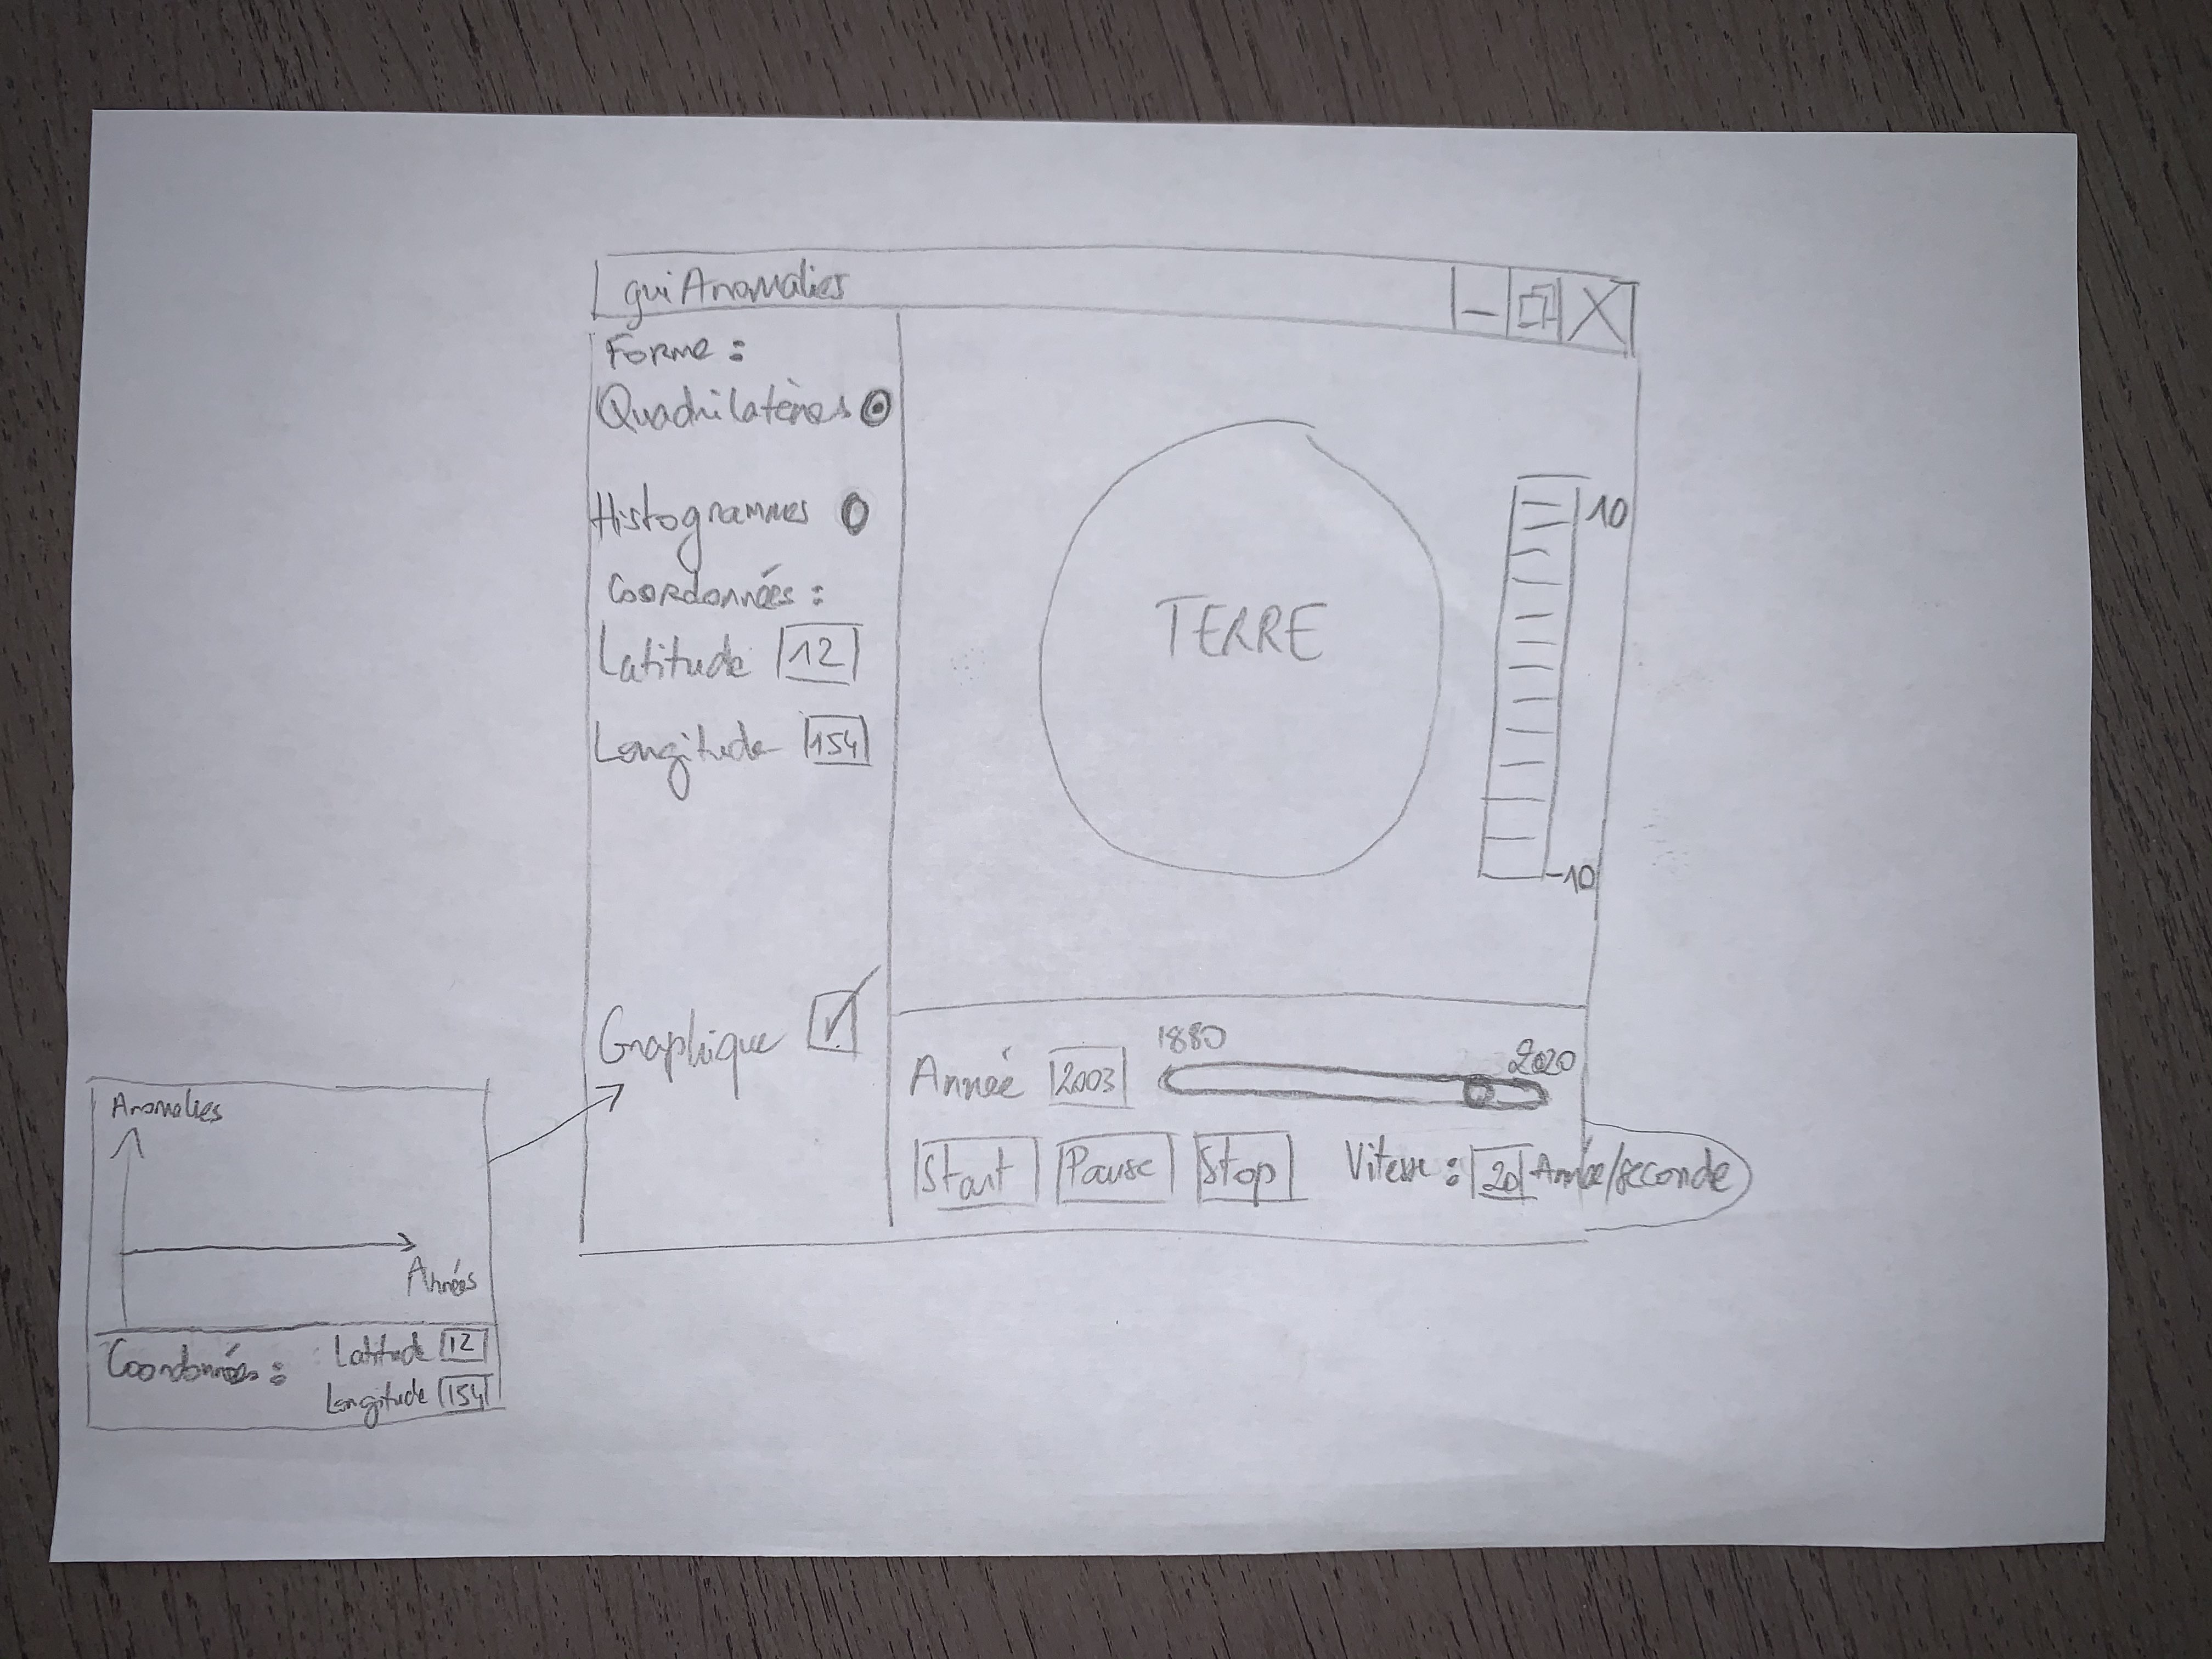 gui Anomalies
Forme :
Quadrilatères
Histogrammes
Coordonnées :
Latitude 12
Longitude 154
Graphique
TERRE
10
-10
Année 2003
1880
2020
Start Pause Stop Vitesse : 20 Année/seconde
Anomalies
Années
Coordonnées :
Latitude 12
Longitude 154